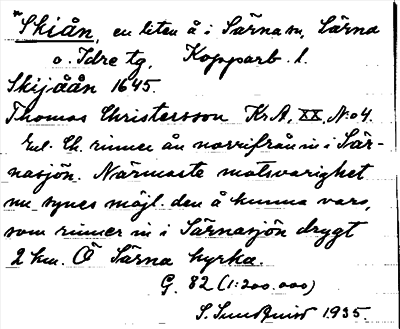 *Skiån, en liten å i Särna sn, Särna
o. Idre tg, Kopparb. l.
Skijåån 1645.
Thomas Christersson K. A, XX, No 4.
Enl. Ch. rinner ån norrifrån in i Sär-
nasjön. Närmaste motsvarighet
nu synes möjl. den å kunna vara,
som rinner in i Särnasjön drygt
2 km. Ö Särna kyrka.
G. 82 (1:200.000)
S. Sundquist 1935.